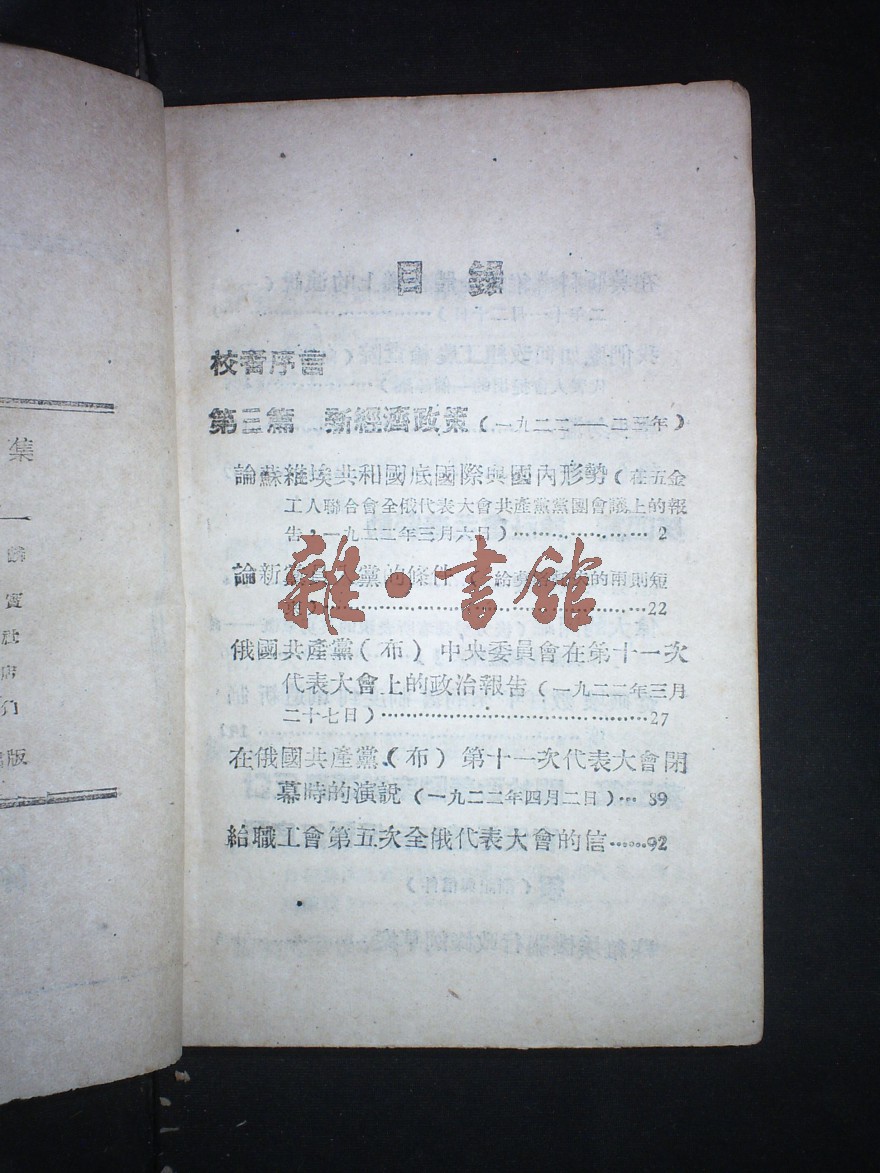 目錄
校者序言
第三篇 新經濟政策(一九二二——二三年)
論蘇維埃共和國底國際與國內形勢(在五金
工人聯合會全俄代表大會共產黨黨團會議上的報
告,一九二二年三月六日)……………… 2
論新黨員入黨的條件 給 的兩則短
……………22
俄國共產黨(布)中央委員會在第十一次
代表大會上的政治報告(一九二二年三月
二十七日)……………………………27
在俄國共產黨(布)第十一次代表大會閉
幕時的演說(一九二二年四月二日)… 89
給職工會第五次全俄代表大會的信……92
雜·書館
集
一
寳
社
店
版